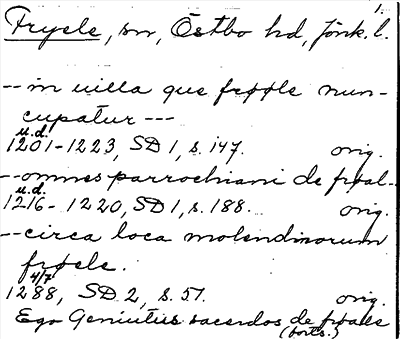 1.
Fryele, sn, Östbo hd, Jönk. l.
-- in uilla que frøøle nun-
cupatur ---
u.d.
1201-1223, SD 1, s. 147. orig.
-- omnes parrochiani de frøal--
u.d.
1216-1220, SD 1, s. 188. orig.
-- circa loca molendinorum
frøele.
4/7
1288, SD 2, s. 51. orig.
Ego Geniutus sacerdos de frøale
(forts.)